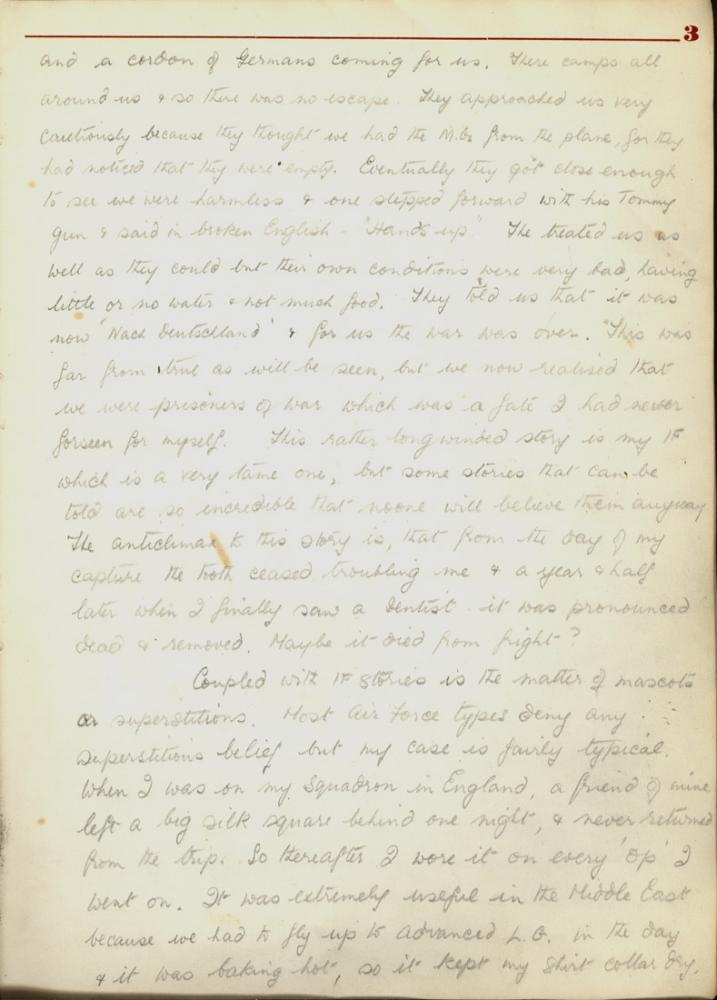 3
and a cordon of Germans coming for us. There camps all
around us & so there was no escape. They approached us very
cautiously because they thought we had the M.Gs from the plane, for they
had noticed that they were empty. Eventually they got close enough
to see we were harmless & one stepped forward with his Tommy
gun & said in broken English - "Hands up". The treated us as
well as they could but their own conditions were very bad, having
little or no water & not much food. They told us that it was
now 'Nach Deutschland' & for us the war was over. This was
far from true as will be seen, but we now realised that
we were prisoners of war which was a fate I had never
forseen for myself. This rather longwinded story is my IF
which is a very tame one, but some stories that can be
told are so incredible that noone will believe them anyway
The anticlimax to this story is, that from the day of my
capture the tooth ceased troubling me & a year & half
later when I finally saw a dentist it was pronounced
dead & removed. Maybe it died from fright?
Coupled with IF stories is the matter of mascots
or superstitions. Most Air Force types deny any
superstitious belief but my case is fairly typical.
When I was on my Squadron in England, a friend of mine
left a big silk square behind one night, & never returned
from the trip. So thereafter I wore it on every 'Op' I
went on. It was extremely useful in the Middle East
because we had to fly up to advanced L.G. in the day
& it was baking hot, so it kept my shirt collar dry.